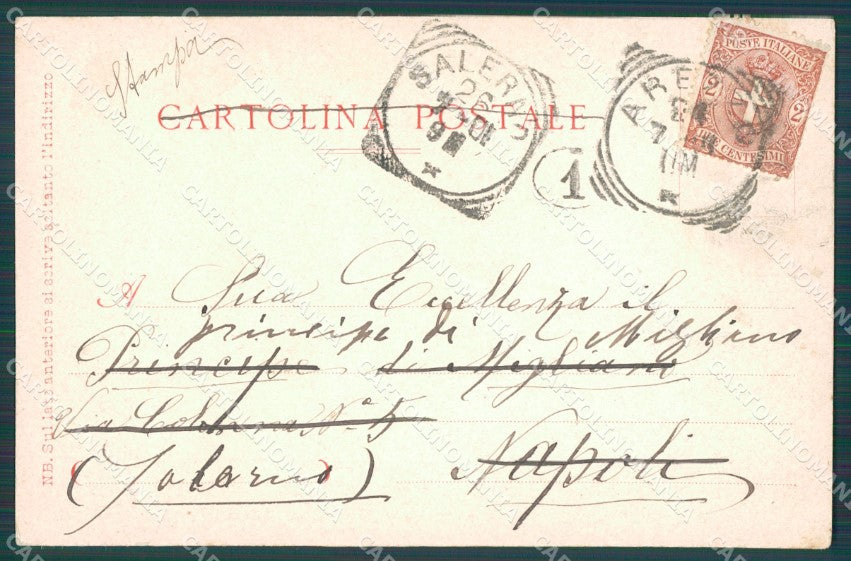 Stampa
CARTOLINA POSTALE
SALERNO
26
7-01
9M
1
AREZZO
24
7
11M
POSTE ITALIANE
2 2
DUE CENTESIMI
NB. Sul lato anteriore si scrive soltanto l'indirizzo
A Sua Eccellenza il
principe di Migliano
Principe di Migliano
Via Colonna No. 5
(Salerno) Napoli
CARTOLINOMANIA